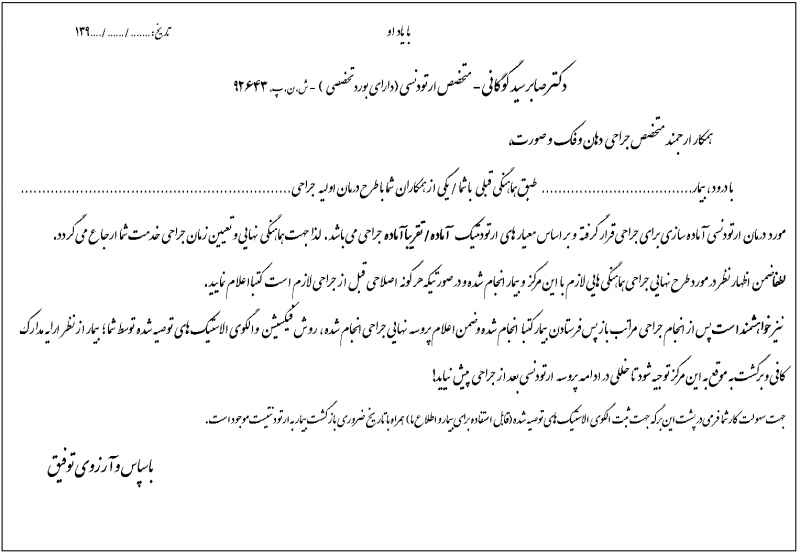 با یاد او
تاریخ: ....... / ...... / ....۱۳۹
دکتر صابر سید گوگانی - متخصص ارتودنسی (دارای بورد تخصصی ) - ش.ن.پ. ۹۲۶۴۳
همکار ارجمند متخصص جراحی دهان و فک و صورت،
با درود، بیمار................................... طبق هماهنگی قبلی با شما / یکی از همکاران شما با طرح درمان اولیه جراحی...............................................................
مورد درمان ارتودنسی آماده سازی برای جراحی قرار گرفته و بر اساس معیار های ارتودنتیک آماده / تقریبا آماده جراحی می باشد . لذا جهت هماهنگی نهایی و تعیین زمان جراحی خدمت شما ارجاع می گردد.
لطفا ضمن اظهار نظر در مورد طرح نهایی جراحی هماهنگی هایی لازم با این مرکز و بیمار انجام شده و در صورتیکه هر گونه اصلاحی قبل از جراحی لازم است کتبا اعلام نمایید .
نیز خواهشمند است پس از انجام جراحی مراتب باز پس فرستادن بیمار کتبا انجام شده و ضمن اعلام پروسه نهایی جراحی انجام شده ، روش فیکسیشن و الگوی الاستیک های توصیه شده توسط شما؛ بیمار از نظر ارایه مدارک
کافی و برگشت به موقع به این مرکز توجیه شود تا خللی در ادامه پروسه ارتودنسی بعد از جراحی پیش نیاید!
جهت سهولت کار شما فرمی در پشت این برگه جهت ثبت الگوی الاستیک های توصیه شده (قابل استفاده برای بیمار و اطلاع ما) همراه با تاریخ ضروری بازگشت بیمار به ارتودنتیست موجود است.
با سپاس و آرزوی توفیق